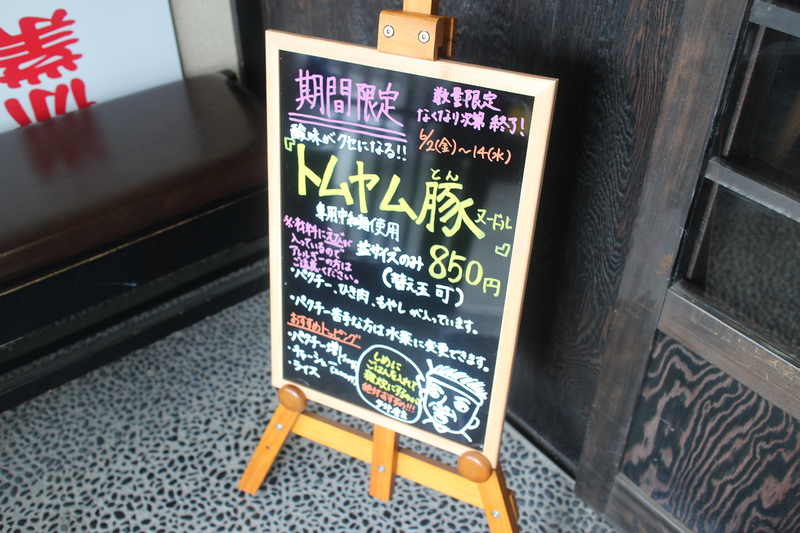 期間限定
数量限定
なくなり次第 終了!
6/2(金)~14(水)
酸味がクセになる!!
『トムヤム豚ヌードル』
とん
専用中細麺使用
並サイズのみ 850円
(替え玉 可)
※材料にえびが
入っているので
アレルギーの方は
ご注意ください。
・パクチー、ひき肉、もやしが入っています。
・パクチー苦手な方は水菜に変更できます。
おすすめトッピング
・パクチー増し
・チャーシュー
・ライス
しめに
ごはんを入れて
雑炊にするのが
絶対おすすめ!!!